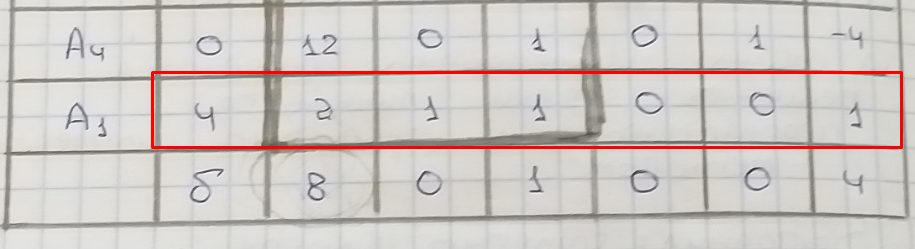 A4 0 12 0 1 0 1 -4
A1 4 2 1 1 0 0 1
δ 8 0 1 0 0 4